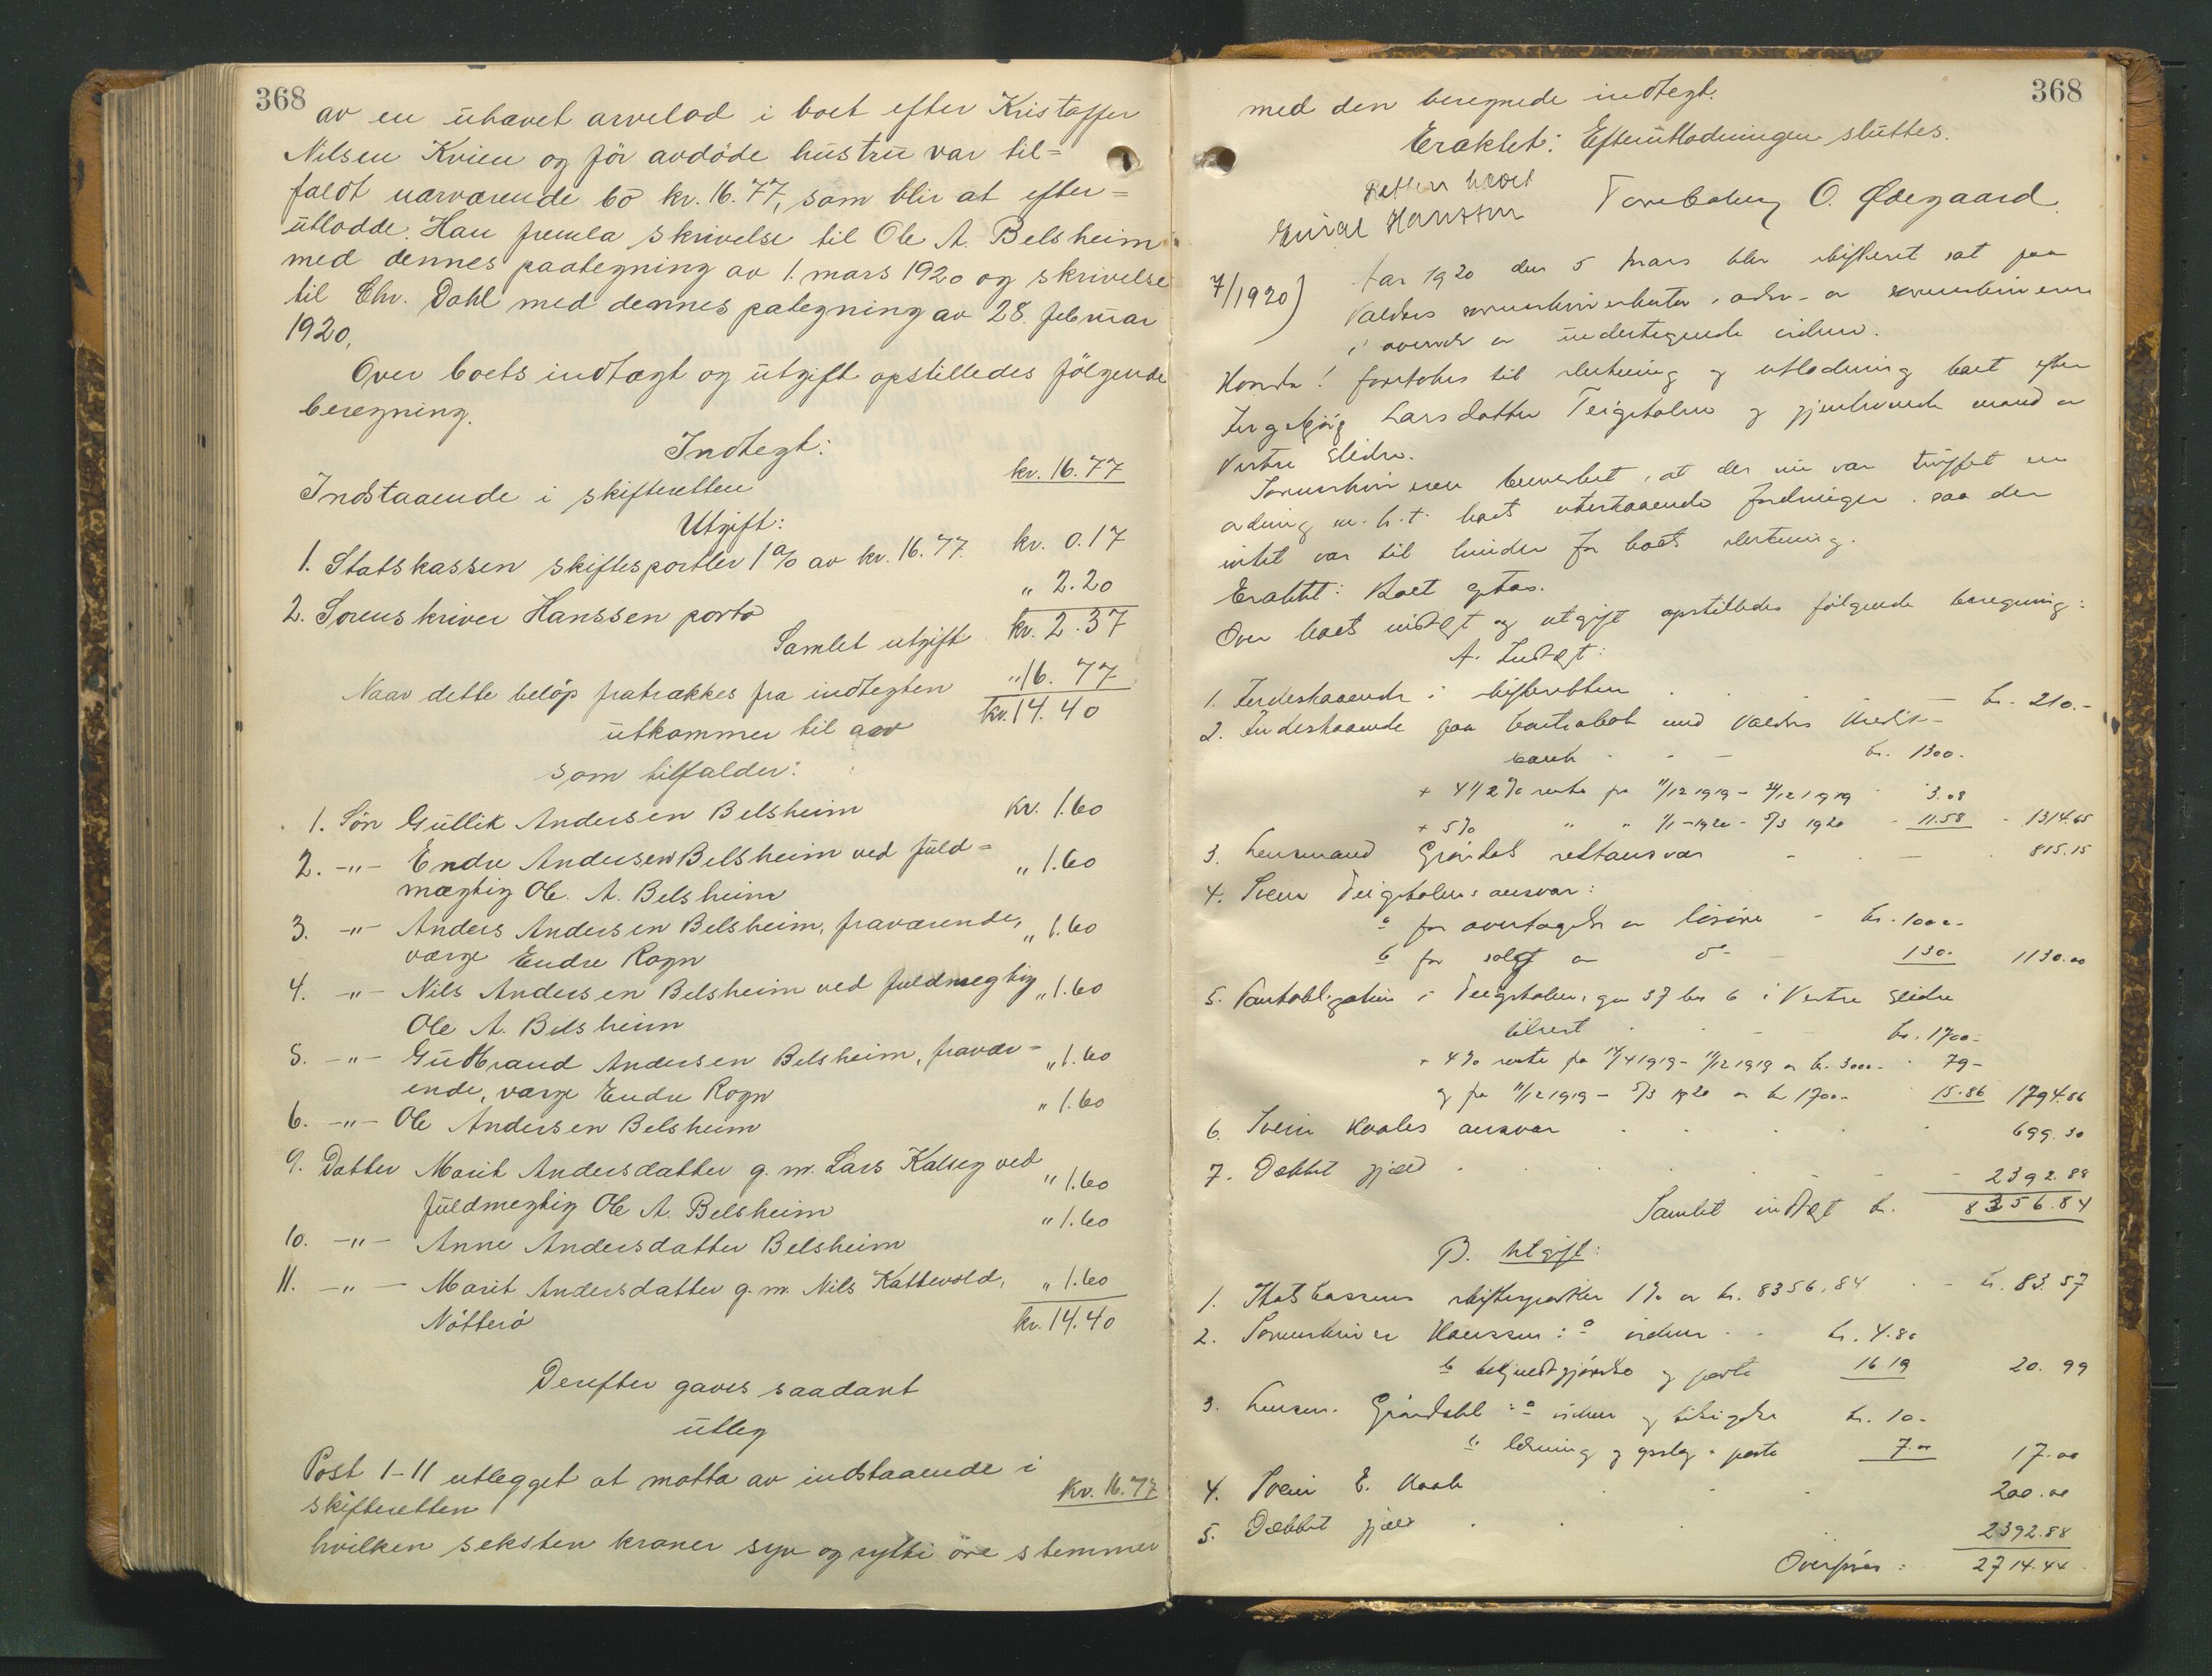 368
av en uhævet arvelod i boet efter Kristoffer
Nilsen Kvien og för avdöde hustru var til=
faldt nærværende bo kr. 16.77, som blir at efter=
utlodde. Han fremla skrivelse til Ole A. Belsheim
med dennes paategning av 1. mars 1920 og skrivelse
til Chr. Dahl med dennes pategning av 28. februar
1920.
Over boets indtægt og utgift opstilledes fölgende
beregning.
Indtegt:
Indstaaende i skifteretten kr. 16.77
Utgift:
1. Statskassen skiftesportler 1% av kr. 16.77 kr. 0.17
2. Sorenskriver Hanssen porto " 2.20
Samlet utgift kr. 2.37
Naar dette belöp fratrækkes fra indtegten " 16.77
utkommer til arv kr. 14.40
som tilfalder:
1. Sön Gullik Andersen Belsheim kr. 1.60
2. -"- Endre Andersen Belsheim ved fuld= " 1.60
mægtig Ole A. Belsheim
3. -"- Anders Andersen Belsheim, fraværende, " 1.60
værge Endre Rogn
4. -"- Nils Andersen Belsheim ved fuldmegtig " 1.60
Ole A. Belsheim
5. -"- Gudbrand Andersen Belsheim, fravær- " 1.60
ende, værge Endre Rogn
6. -"- Ole Andersen Belsheim " 1.60
9. Datter Marit Andersdatter g. m. Lars Kalseg ved " 1.60
fuldmegtig Ole A. Belsheim
10. -"- Anne Andersdatter Belsheim " 1.60
11. -"- Marit Andersdatter g. m. Nils Kattevold, " 1.60
Nötterö kr. 14.40
Derefter gaves saadant
utleg
Post 1-11 utlegget at motta av indstaaende i
skifteretten kr. 16.77
hvilken seksten kroner syv og sytti öre stemmer
368
med den beregnede indtegt.
Eraktet: Efterutlodningen sluttes.
Retten hævet
Hanssen O. Ødegaard
7/1920) Aar 1920 den 5 mars blev skifteret sat paa
Valdres sorenskriverkontor, adm. av sorenskriveren
i overvær av undertegnede vidner.
Hvorda! foretokes til slutning og utlodning boet efter
Ingebjörg Larsdatter Teigstolen og gjenlevende mand av
Vestre Slidre.
Sorenskriveren bemerket, at der nu var truffet en
ordning m.h.t. boets utestaaende fordringer saa der
intet var til hinder for boets slutning.
Eraktet: Boet optas.
Over boets indtægt og utgift opstilledes fölgende beregning:
A. Indtægt:
1. Indestaaende i skifteretten kr. 210.-
2. Indestaaende paa kontrabok med Valdres Kredit-
bank kr. 1300.
+ 4 1/2 % rente fra 11/12 1919 - 1919 3.08
+ 5% " " 1/1-1920 - 5/3 1920 11.58 1314.65
3. Lensmand Gröndal restansvar 815.15
4. Svein Teigstolens ansvar:
a for overtagelse av lösöre kr. 1000.-
b for solgt av do 130.- 1130.00
5. Pantobligation i Teigstolen, gn 37 br 6 i Vestre Slidre
tilrest kr. 1700.-
+ 4% rente fra 14/4 1919 - 11/12 1919 av kr. 3000.- 79.-
og fra 11/12 1919 - 5/3 1920 av kr 1700.- 15.86 1794.86
6. Svein ansvar 699.30
7. Dækket gjæld 2392.88
Samlet indtægt kr. 8356.84
B. Utgift:
1. Statskassens skiftesportler 1% av kr. 8356,84 kr. 83.57
2. Sorenskriver Hanssen: a vidner kr. 4.80
b bekjendtgjörelse og porto 16.19 20.99
3. Lensm. Gröndahl: a vidner og tilsigelse kr. 10.-
b og porto 7.00 17.00
4. Svein E. 200.00
5. Dækket gjæld 2392.88
Overföres: 2714.44